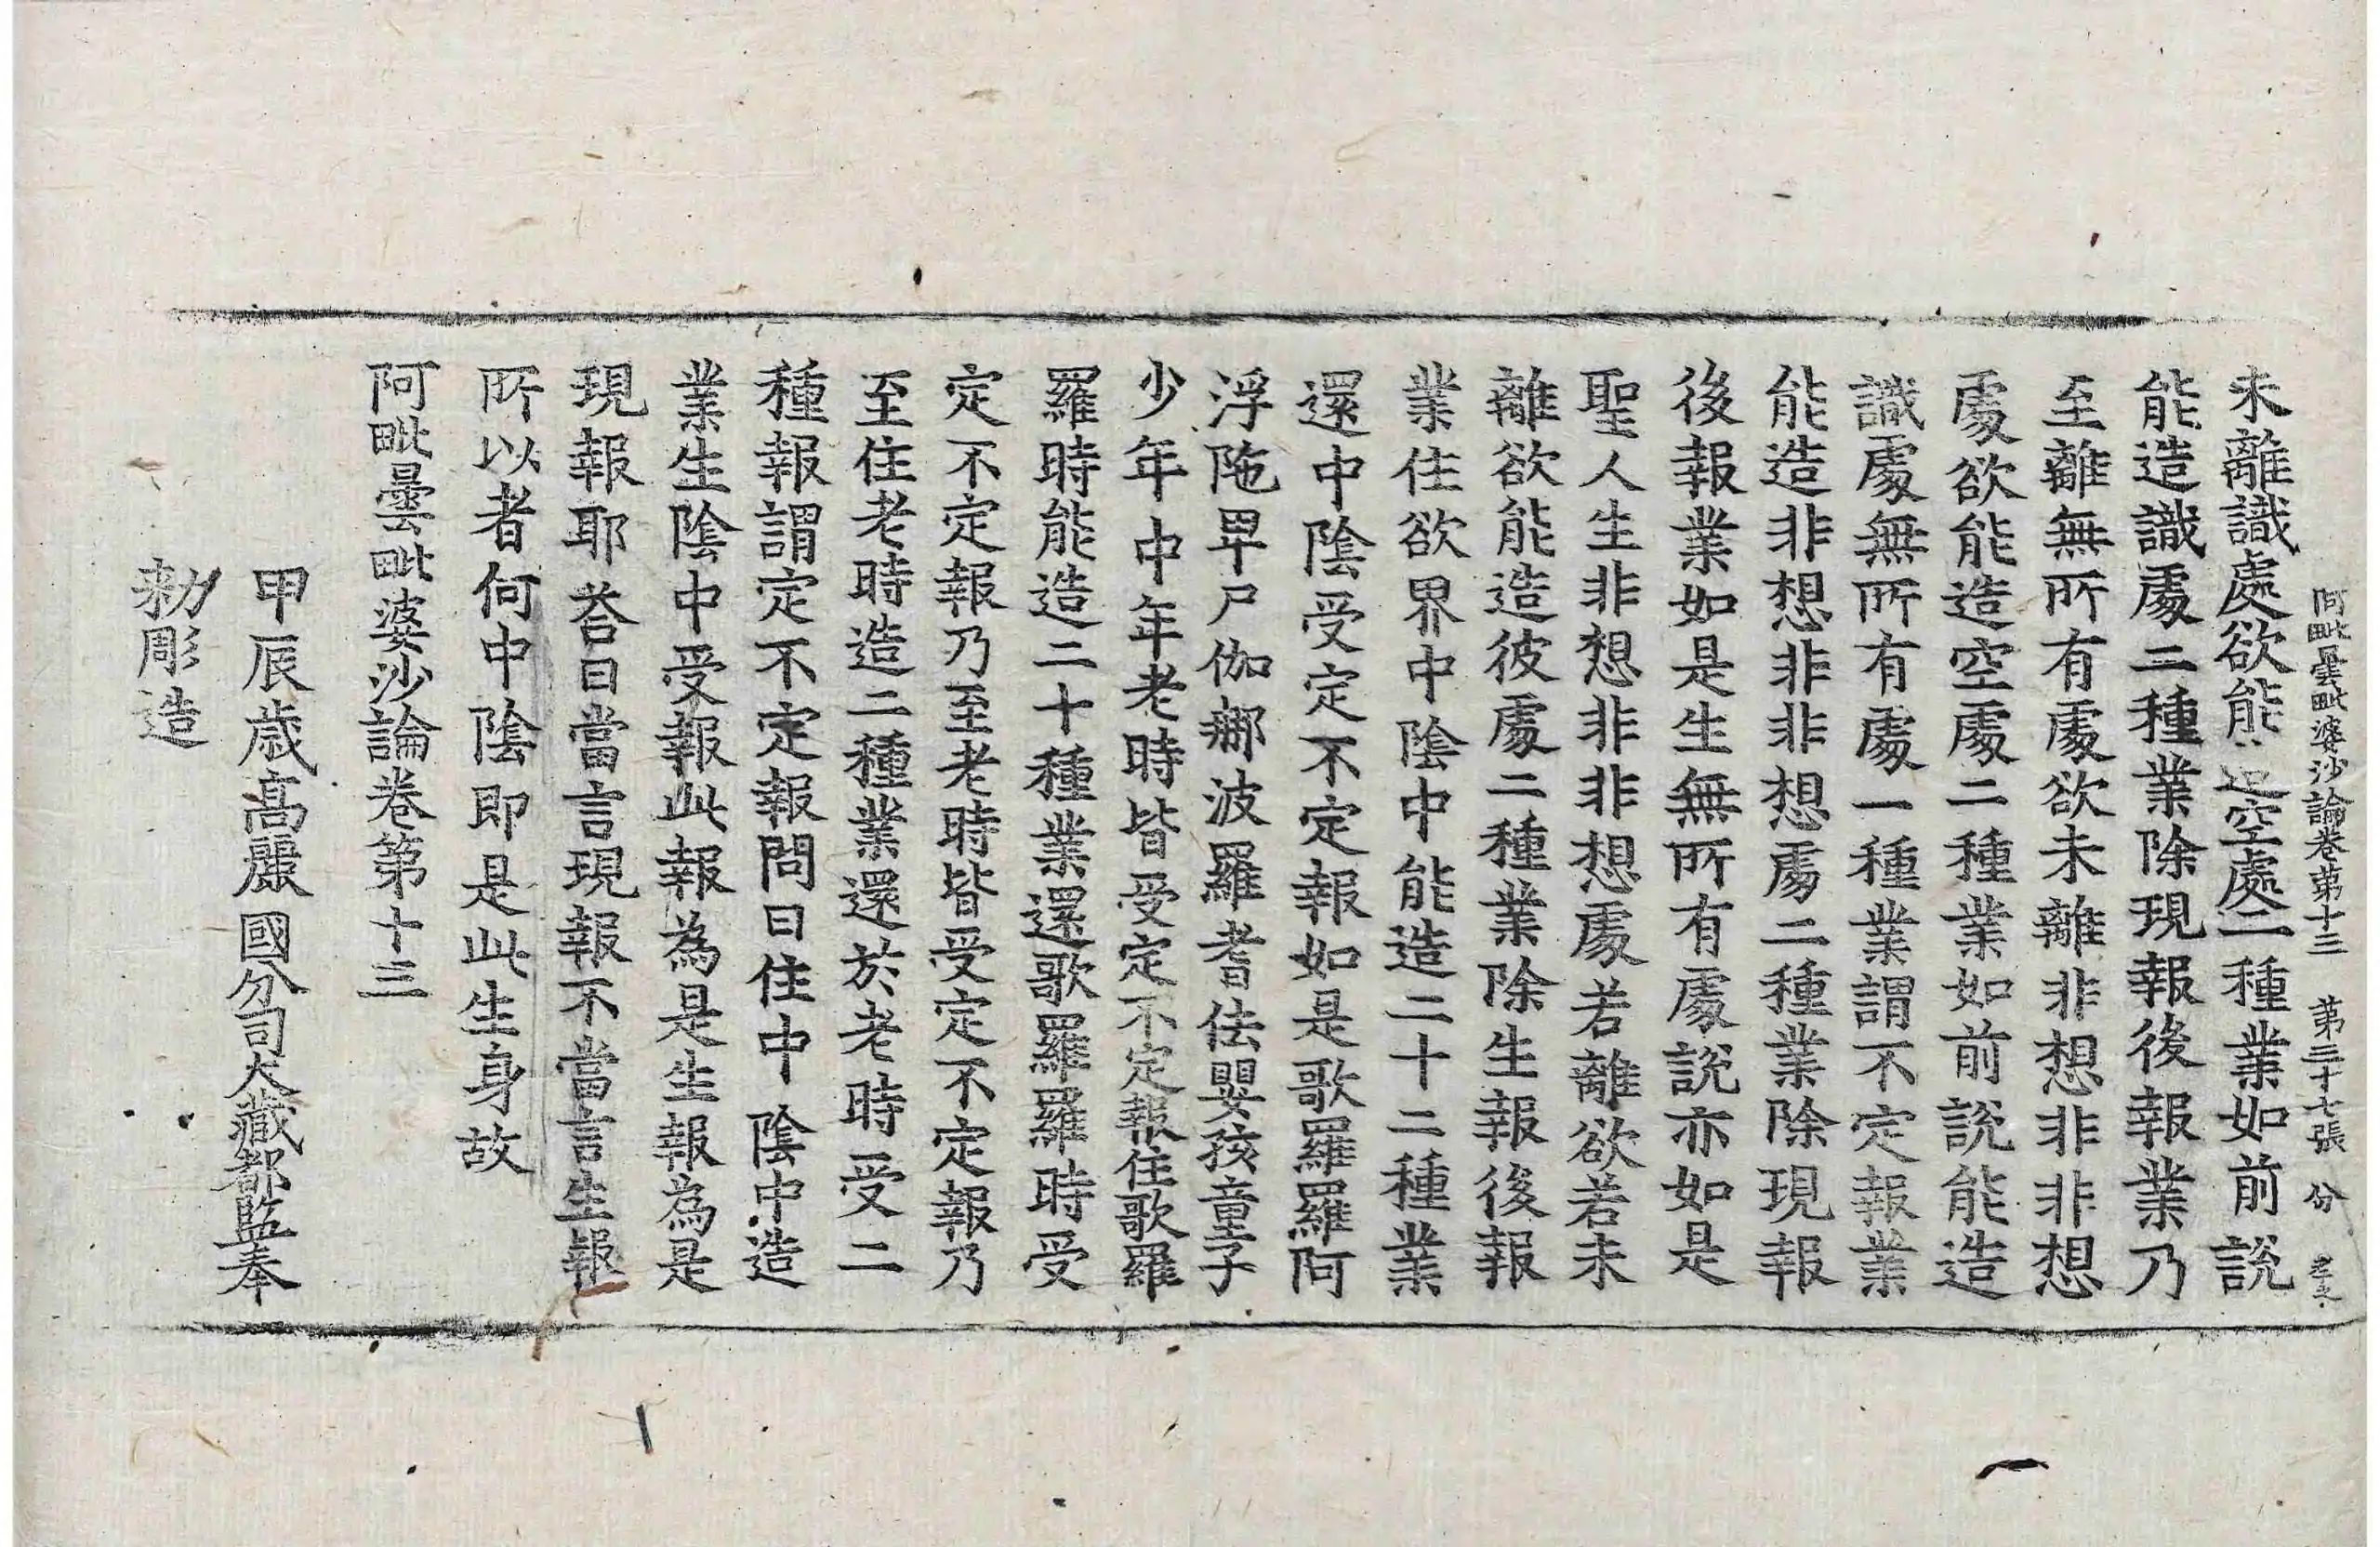 阿毗曇毗婆沙論卷第十三　第三十七張　份
未離識處欲能造空處二種業如前說
能造識處二種業除現報後報業乃
至離無所有處欲未離非想非非想
處欲能造空處二種業如前說能造
識處無所有處一種業謂不定報業
能造非想非非想處二種業除現報
後報業如是生無所有處說亦如是
聖人生非想非非想處若離欲若未
離欲能造彼處二種業除生報後報
業住欲界中陰中能造二十二種業
還中陰受定不定報如是歌羅羅阿
浮陁𤰞尸伽𨚗波羅耆佉嬰孩童子
少年中年老時皆受定不定報住歌羅
羅時能造二十種業還歌羅羅時受
定不定報乃至老時皆受定不定報乃
至住老時造二種業還於老時受二
種報謂定不定報問曰住中陰中造
業生陰中受報此報為是生報為是
現報耶荅曰當言現報不當言生報
所以者何中陰即是此生身故
阿毗曇毗婆沙論卷第十三
甲辰歲高麗國分司大藏都監奉
勑彫造